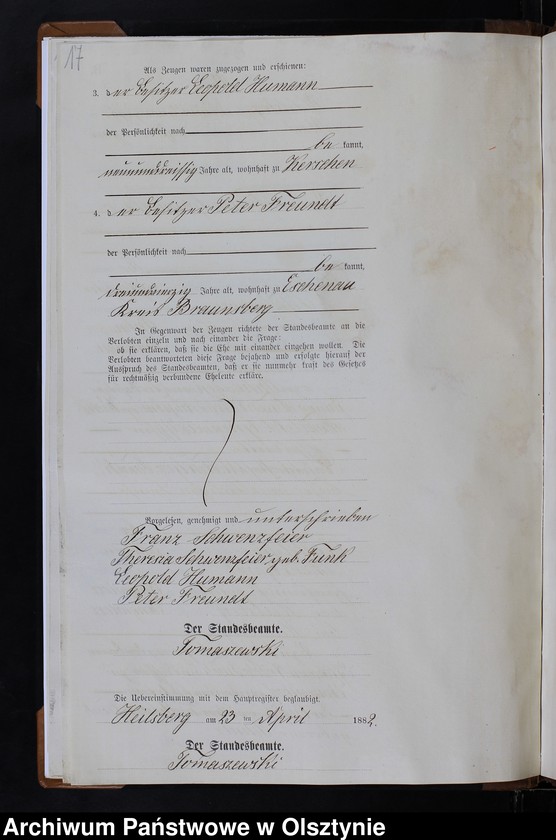 17
Als Zeugen waren zugezogen und erschienen:
3. der Besitzer Leopold Humann
der Persönlichkeit nach
be kannt,
neununddreissig Jahre alt, wohnhaft zu Kerschen
4. der Besitzer Peter Freundt
der Persönlichkeit nach
be kannt,
dreiundvierzig Jahre alt, wohnhaft zu Eschenau
Kreis Braunsberg
In Gegenwart der Zeugen richtete der Standesbeamte an die
Verlobten einzeln und nach einander die Frage:
ob sie erklären, daß sie die Ehe mit einander eingehen wollen. Die
Verlobten beantworteten diese Frage bejahend und erfolgte hierauf der
Ausspruch des Standesbeamten, daß er sie nunmehr kraft des Gesetzes
für rechtmäßig verbundene Eheleute erkläre.
Vorgelesen, genehmigt und unterschrieben
Franz Schwenzfeier
Theresia Schwenzfeier geb. Funk
Leopold Humann
Peter Freundt
Der Standesbeamte.
Tomaszewski
Die Uebereinstimmung mit dem Hauptregister beglaubigt.
Heilsberg am 23 ten April 1882.
Der Standesbeamte.
Tomaszewski
Archiwum Państwowe w Olsztynie